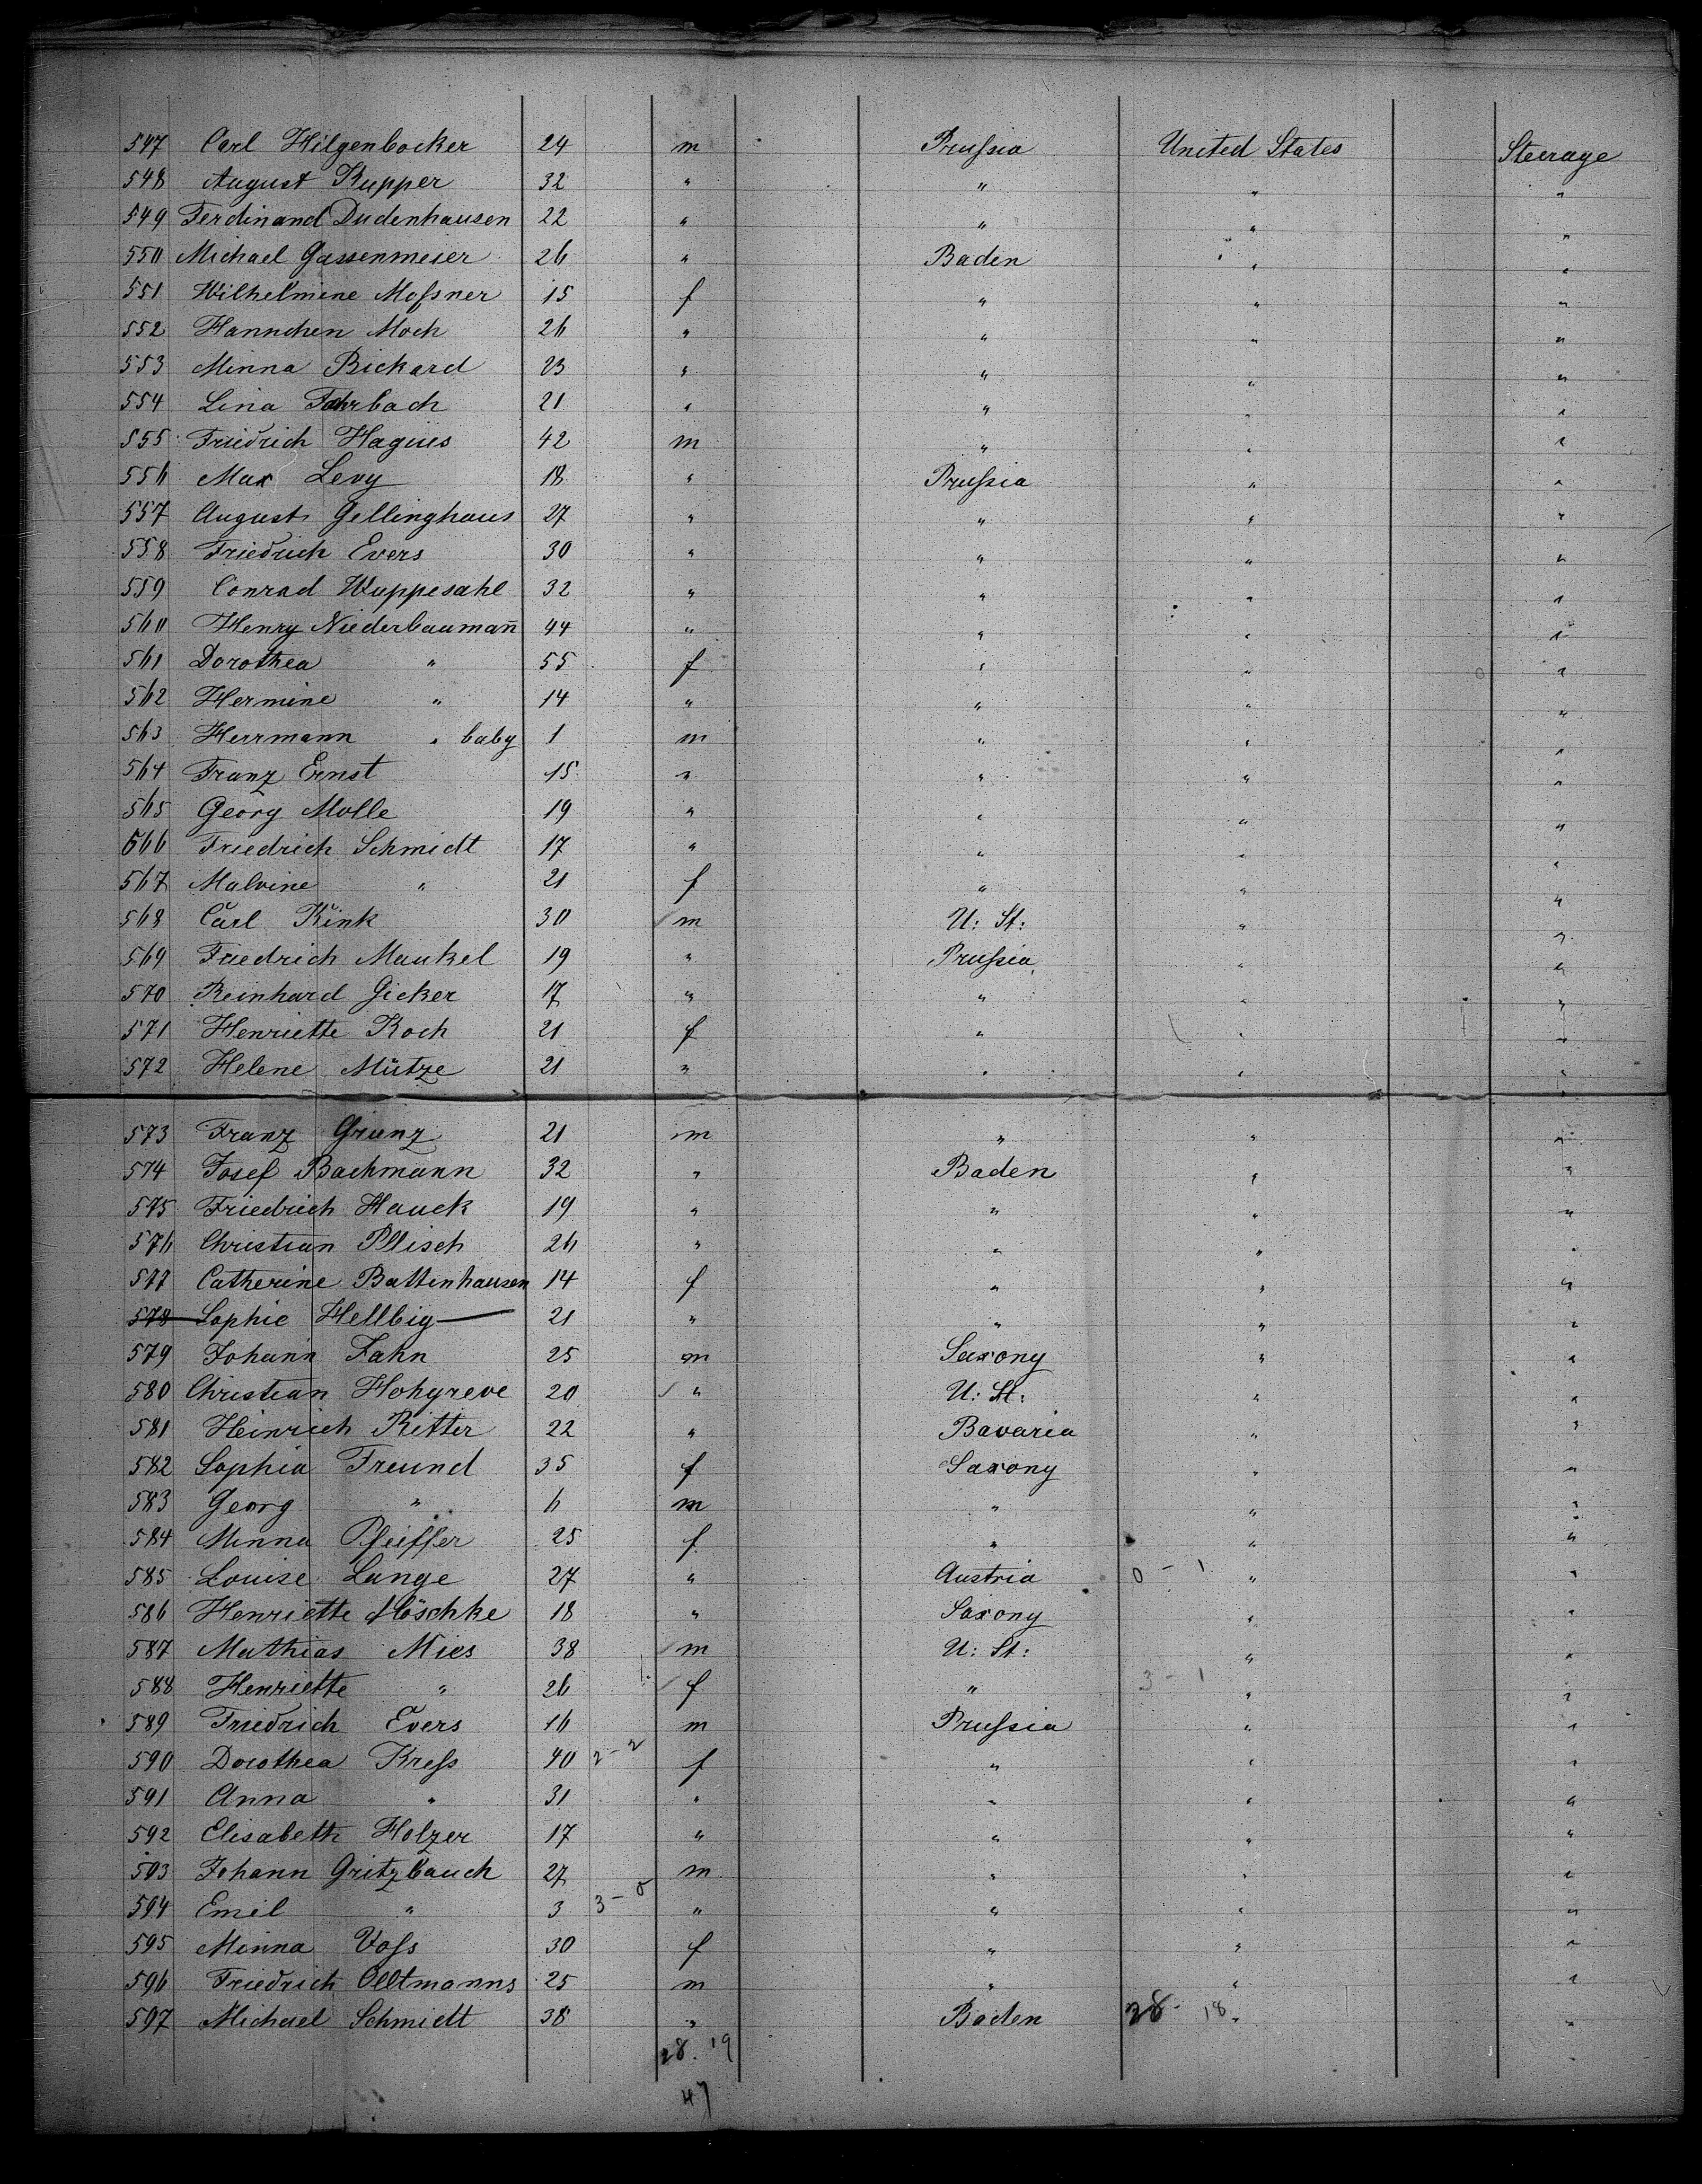 547 Carl Hilgenbocker 24 m Prussia United States Steerage
548 August Kupper 32 " " " "
549 Ferdinand Dudenhausen 22 " " " "
550 Michael Gassenmeier 26 " Baden " "
551 Wilhelmine Mossner 15 f " " "
552 Hannchen Moch 26 " " " "
553 Minna Bickard 23 " " " "
554 Lina Fahrbach 21 " " " "
555 Friedrich Hagius 42 m " " "
556 Max Levy 18 " Prussia " "
557 August Gellinghaus 27 " " " "
558 Friedrich Evers 30 " " " "
559 Conrad Wuppesahl 32 " " " "
560 Henry Niederbaumañ 44 " " " "
561 Dorothea " 55 f " " "
562 Hermine " 14 " " " "
563 Herrmann " baby 1 m " " "
564 Franz Ernst 15 " " " "
565 Georg Molle 19 " " " "
566 Friedrich Schmidt 17 " " " "
567 Malvine " 21 f " " "
568 Carl Kink 30 m U: St: " "
569 Friedrich Maukel 19 " Prussia " "
570 Reinhard Gicker 17 " " " "
571 Henriette Koch 21 f " " "
572 Helene Mütze 21 " " " "
573 Franz Grunz 21 m " " "
574 Josef Bachmann 32 " Baden " "
575 Friedrich Hauck 19 " " " "
576 Christian Pllisch 26 " " " "
577 Catherine Battenhausen 14 f " " "
578 Sophie Hellbig 21 " " " "
579 Johann Fahn 25 m Saxony " "
580 Christian Hohgreve 20 " U: St: " "
581 Heinrich Ritter 22 " Bavaria " "
582 Sophia Freund 35 f Saxony " "
583 Georg " 6 m " " "
584 Minna Pfeiffer 25 f " " "
585 Louise Lange 27 " Austria 0 - 1 " "
586 Henriette Höschke 18 " Saxony " "
587 Mathias Mies 38 m U: St: " "
588 Henriette " 26 f " 3 - 1 " "
589 Friedrich Evers 16 m Prussia " "
590 Dorothea Kress 40 2-2 f " " "
591 Anna " 31 " " " "
592 Elisabeth Holzer 17 " " " "
593 Johann Gritzbauch 27 m " " "
594 Emil " 3 3-0 " " " "
595 Minna Voss 30 f " " "
596 Friedrich Olltmanns 25 m " " "
597 Michael Schmidt 38 " Baden 28 - 18 " "
28. 19
47